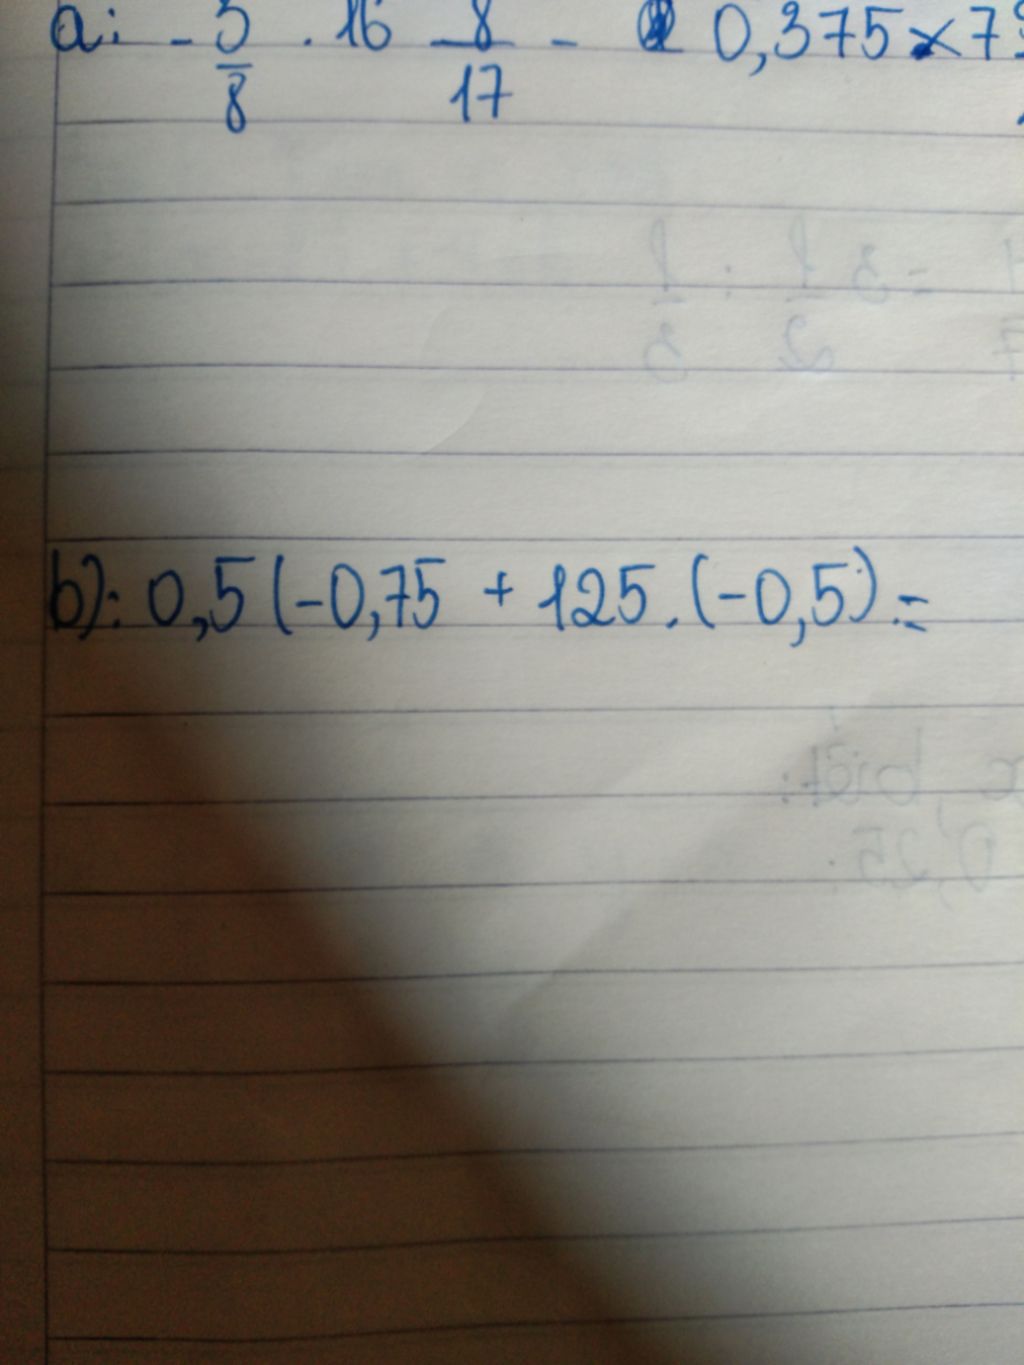 a: - 5/8 . 16 8/17 - 0,375 x 7
b): 0,5 (-0,75 + 125 . (-0,5) =